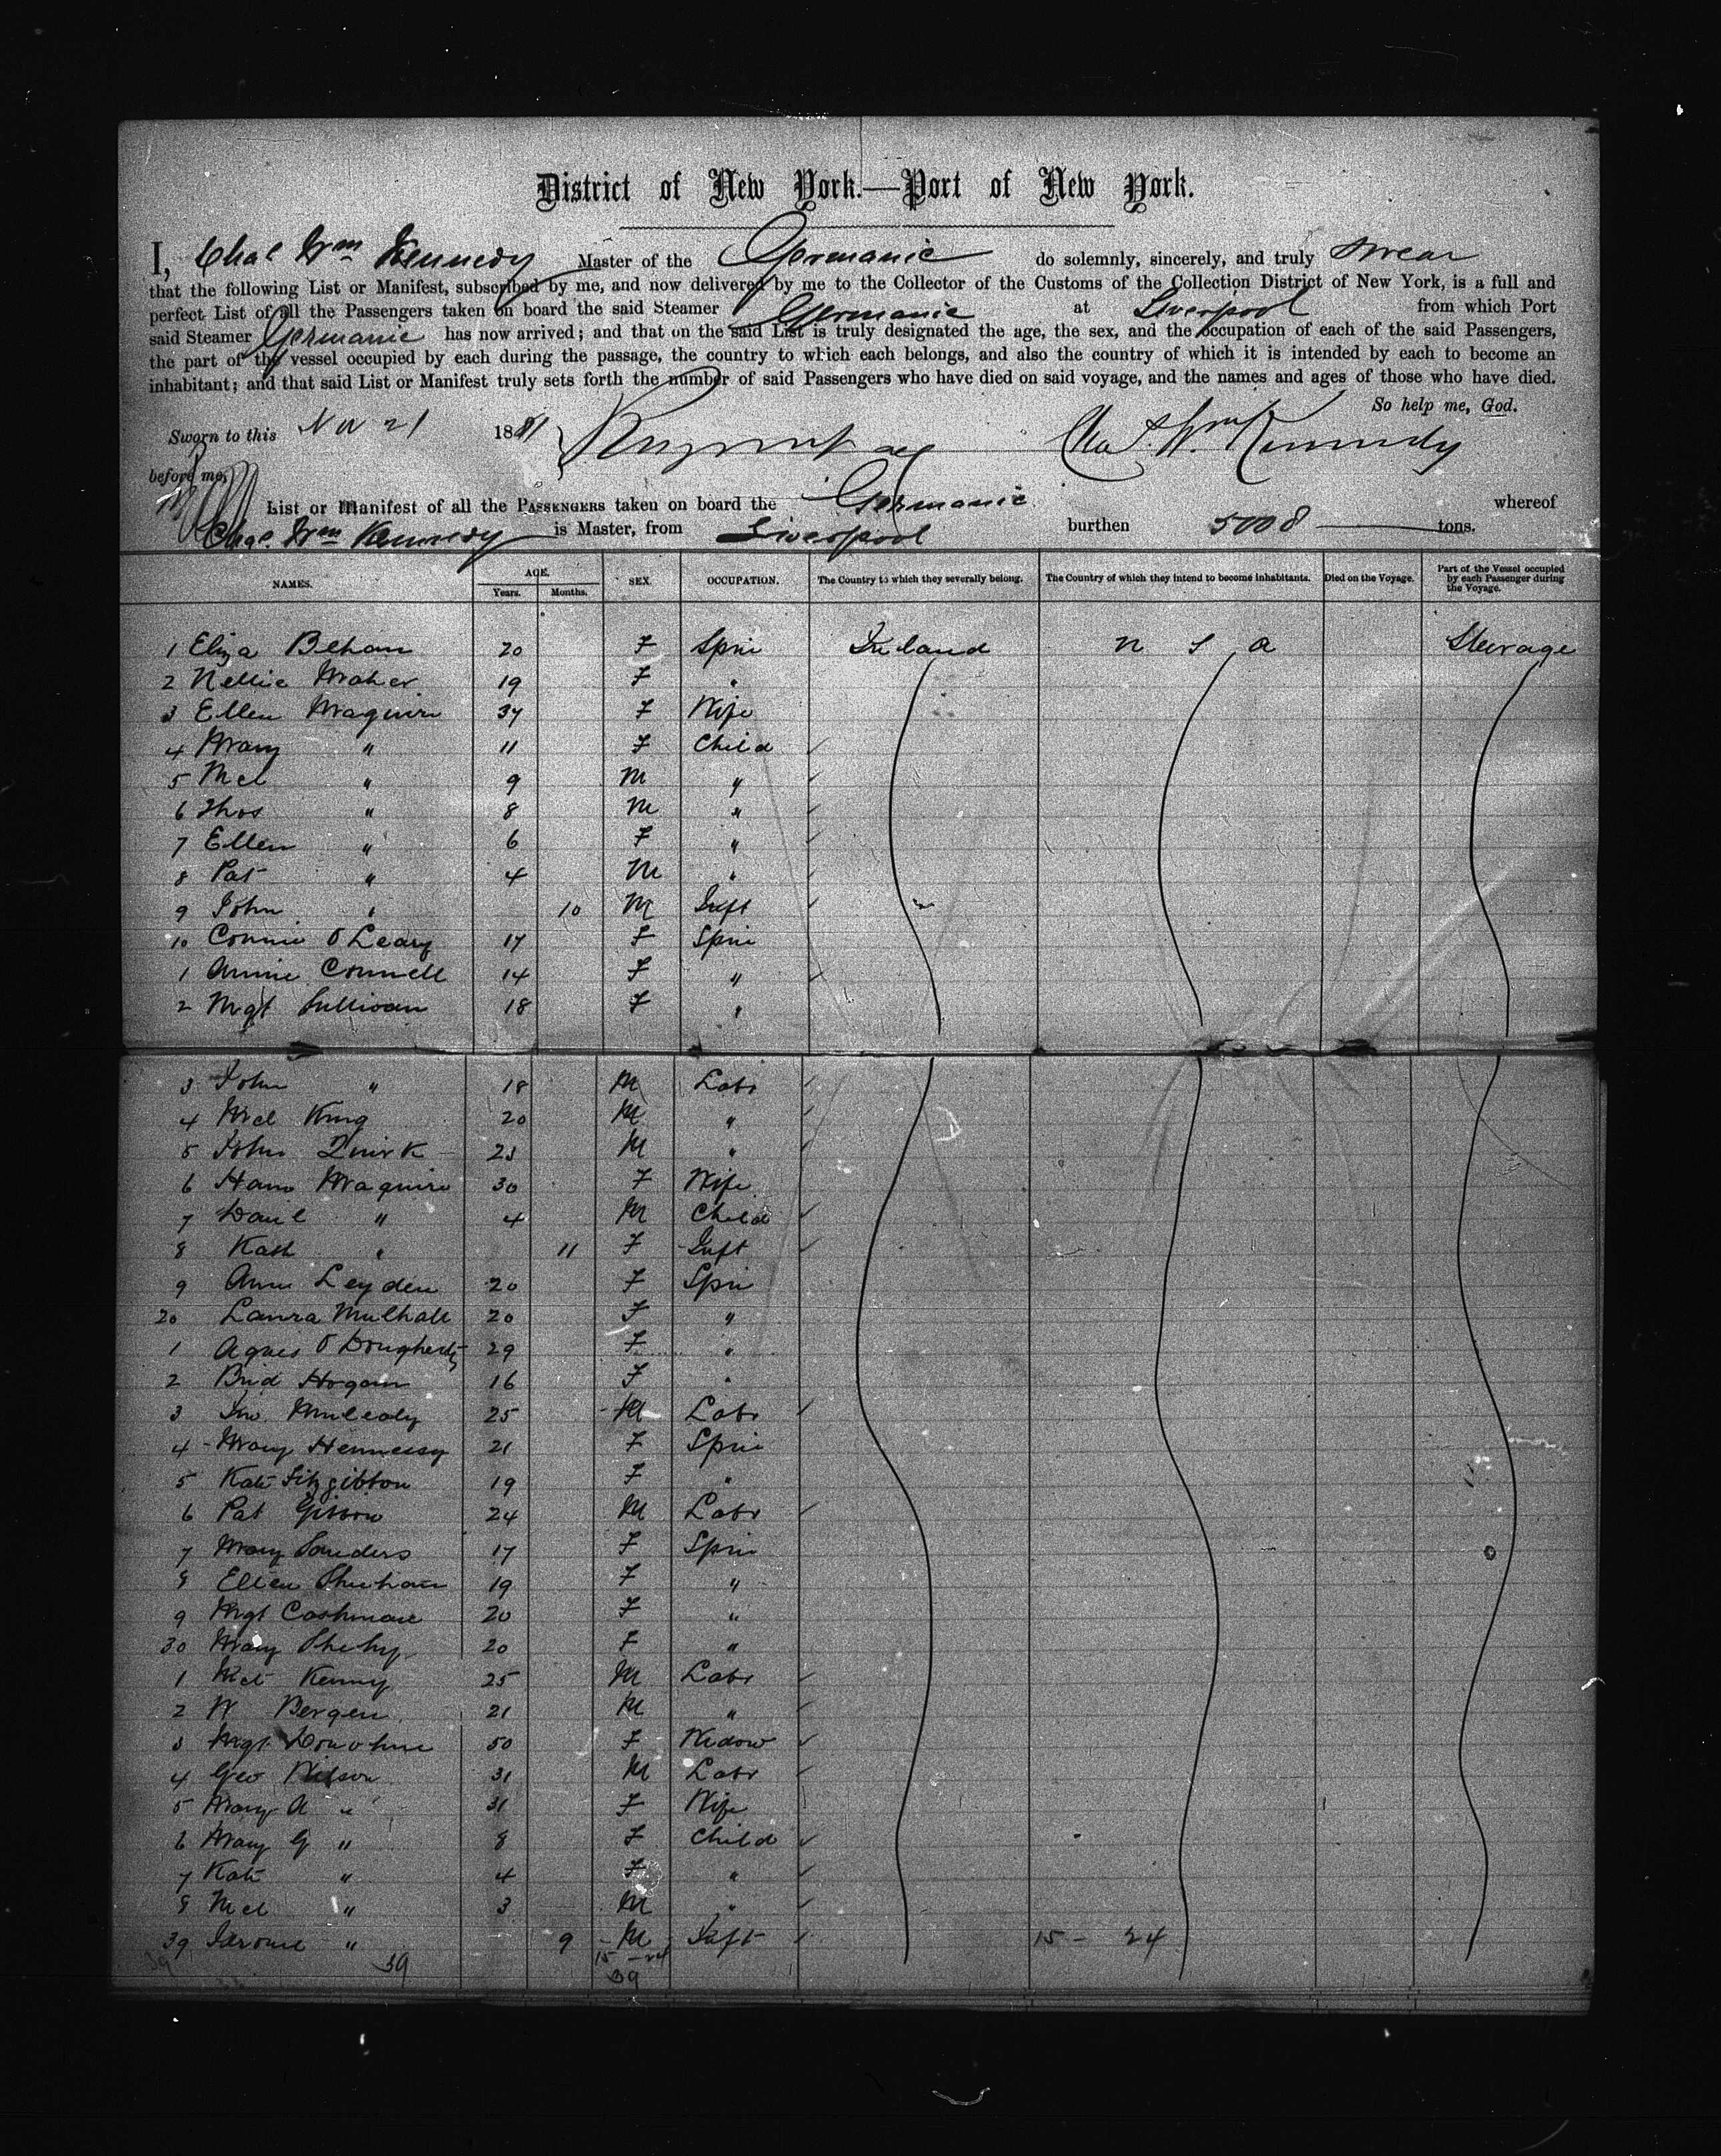 District of New York.—Port of New York.
I, Chas Wm Kennedy Master of the Germanic do solemnly, sincerely, and truly swear
that the following List or Manifest, subscribed by me, and now delivered by me to the Collector of the Customs of the Collection District of New York, is a full and
perfect List of all the Passengers taken on board the said Steamer Germanic at Liverpool from which Port
said Steamer Germanic has now arrived; and that on the said List is truly designated the age, the sex, and the occupation of each of the said Passengers,
the part of the vessel occupied by each during the passage, the country to which each belongs, and also the country of which it is intended by each to become an
inhabitant; and that said List or Manifest truly sets forth the number of said Passengers who have died on said voyage, and the names and ages of those who have died.
So help me, God.
Sworn to this Nov 21 1881 Chas. Wm Kennedy
before me,
List or Manifest of all the PASSENGERS taken on board the Germanic whereof
Chas. Wm Kennedy is Master, from Liverpool burthen 5008 tons.
NAMES. AGE. Years. Months. SEX. OCCUPATION. The Country to which they severally belong. The Country of which they intend to become inhabitants. Died on the Voyage. Part of the Vessel occupied by each Passenger during the Voyage.
1 Eliza Behan 20 F Spin Ireland U S A Steerage
2 Nellie Maher 19 F "
3 Ellen Maguire 34 F Wife
4 Mary " 11 F Child
5 Mcl " 9 M "
6 Thos " 8 M "
7 Ellen " 6 F "
8 Pat " 4 M "
9 John " 10 M Inft
10 Connie O Leary 17 F Spin
1 Annie Connell 14 F "
2 Mgt Sullivan 18 F "
3 John " 18 M Labr
4 Mcl King 20 M "
5 John Quirk 23 M "
6 Hana Maguire 30 F Wife
7 Danl " 4 M Child
8 Kath " 11 F Inft
9 Ann Leyden 20 F Spin
20 Laura Mulhall 20 F "
1 Agnes O Dougherty 29 F "
2 Brid Hogan 16 F "
3 Jno. Mulcaly 25 M Labr
4 Mary Hennessy 21 F Spin
5 Kate Fitzgibbon 19 F "
6 Pat Gibson 24 M Labr
7 Mary Sanders 17 F Spin
8 Ellen Sheehan 19 F "
9 Mgt Cashman 20 F "
30 Mary Sheehy 20 F "
1 Mcl Kenny 25 M Labr
2 W Bergen 21 M "
3 Mgt Donohue 50 F Widow
4 Geo Wilson 31 M Labr
5 Mary A " 31 F Wife
6 Mary G " 8 F Child
7 Kate " 4 F "
8 Mcl " 3 M "
39 Jerome " 9 M Inft 15 - 24
39 39 15 - 24
39